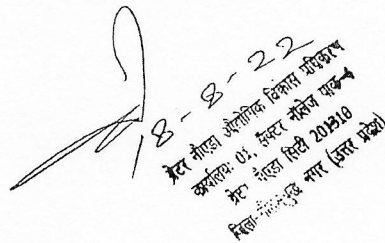 18-8-22
ग्रेटर नौएडा औद्योगिक विकास प्राधिकरण
कार्यालय: 01, सैक्टर नॉलेज पार्क-4
ग्रेटर नौएडा सिटी 201310
जिला-गौतमबुद्ध नगर (उत्तर प्रदेश)